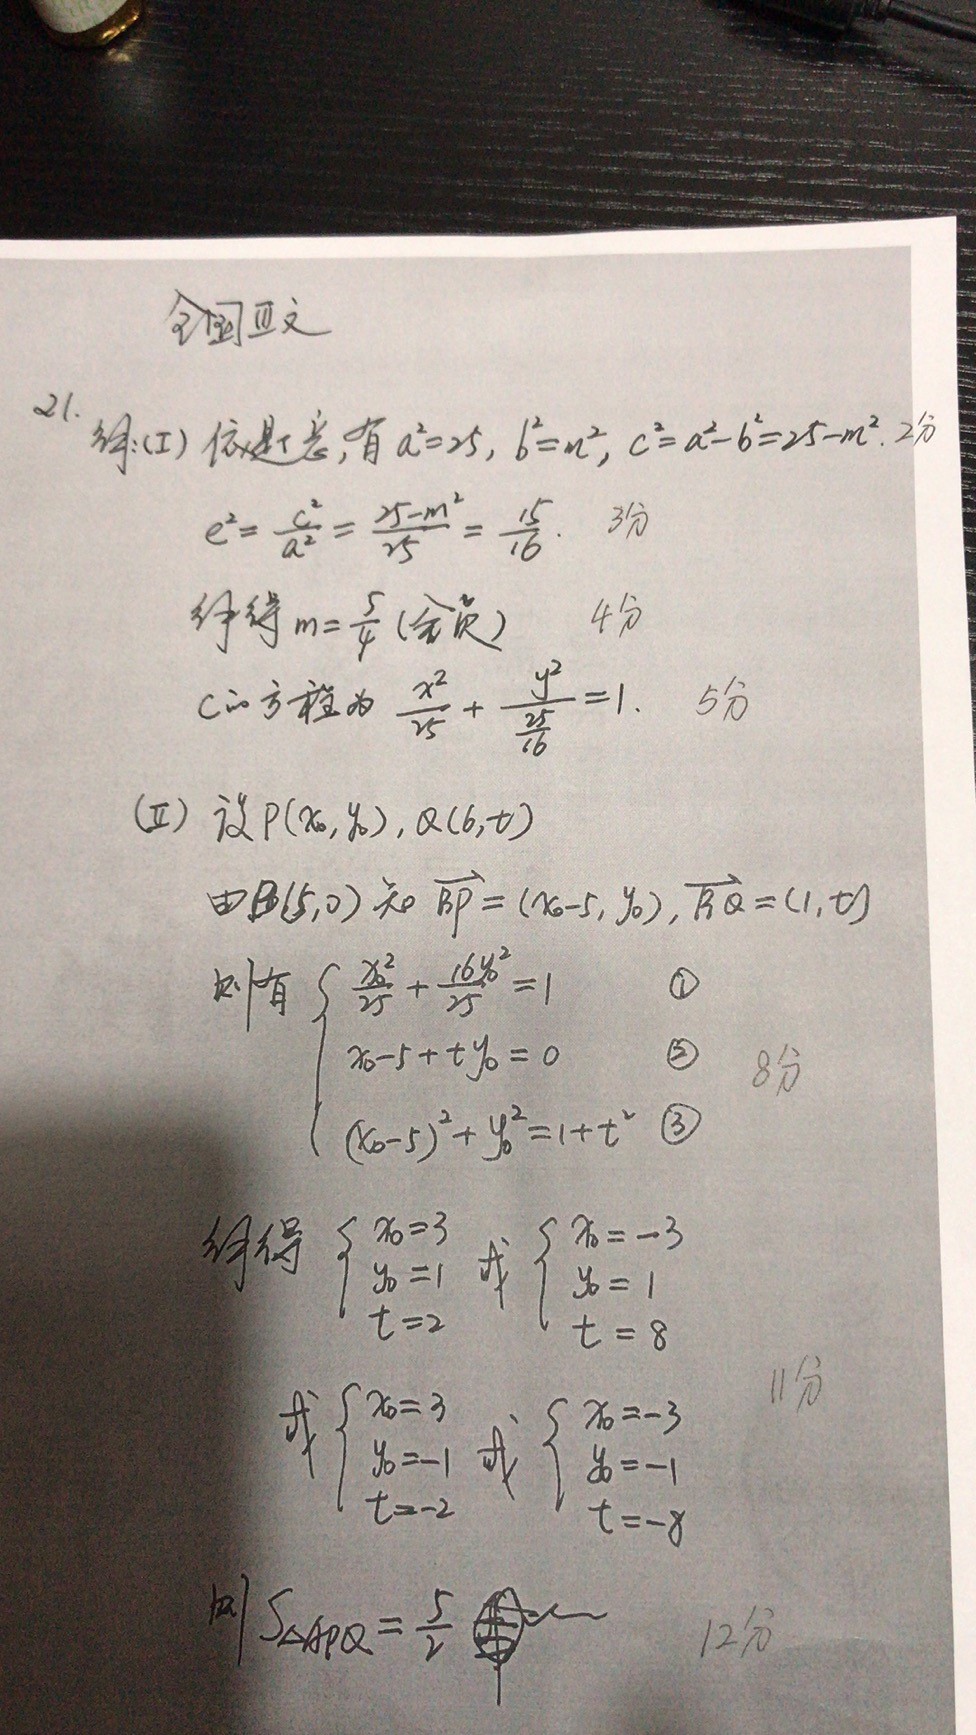 全国Ⅲ文
21.
解:(Ⅰ) 依题意,有 a²=25, b²=m², c²=a²-b²=25-m². 2分
e²= c²/a² = (25-m²)/25 = 15/16. 3分
解得 m=5/4 (舍负) 4分
C的方程为 x²/25 + y²/(25/16) =1. 5分
(Ⅱ) 设P(x₀,y₀), Q(6,t)
由B(5,0)知 BP→=(x₀-5, y₀), BQ→=(1,t)
则有 { x₀²/25 + 16y₀²/25 =1 ①
x₀-5+ty₀=0 ② 8分
(x₀-5)²+y₀²=1+t² ③
解得 { x₀=3 或 { x₀=-3
y₀=1 y₀=1
t=2 t=8
11分
或 { x₀=3 或 { x₀=-3
y₀=-1 y₀=-1
t=-2 t=-8
则 S△APQ = 5/2 12分